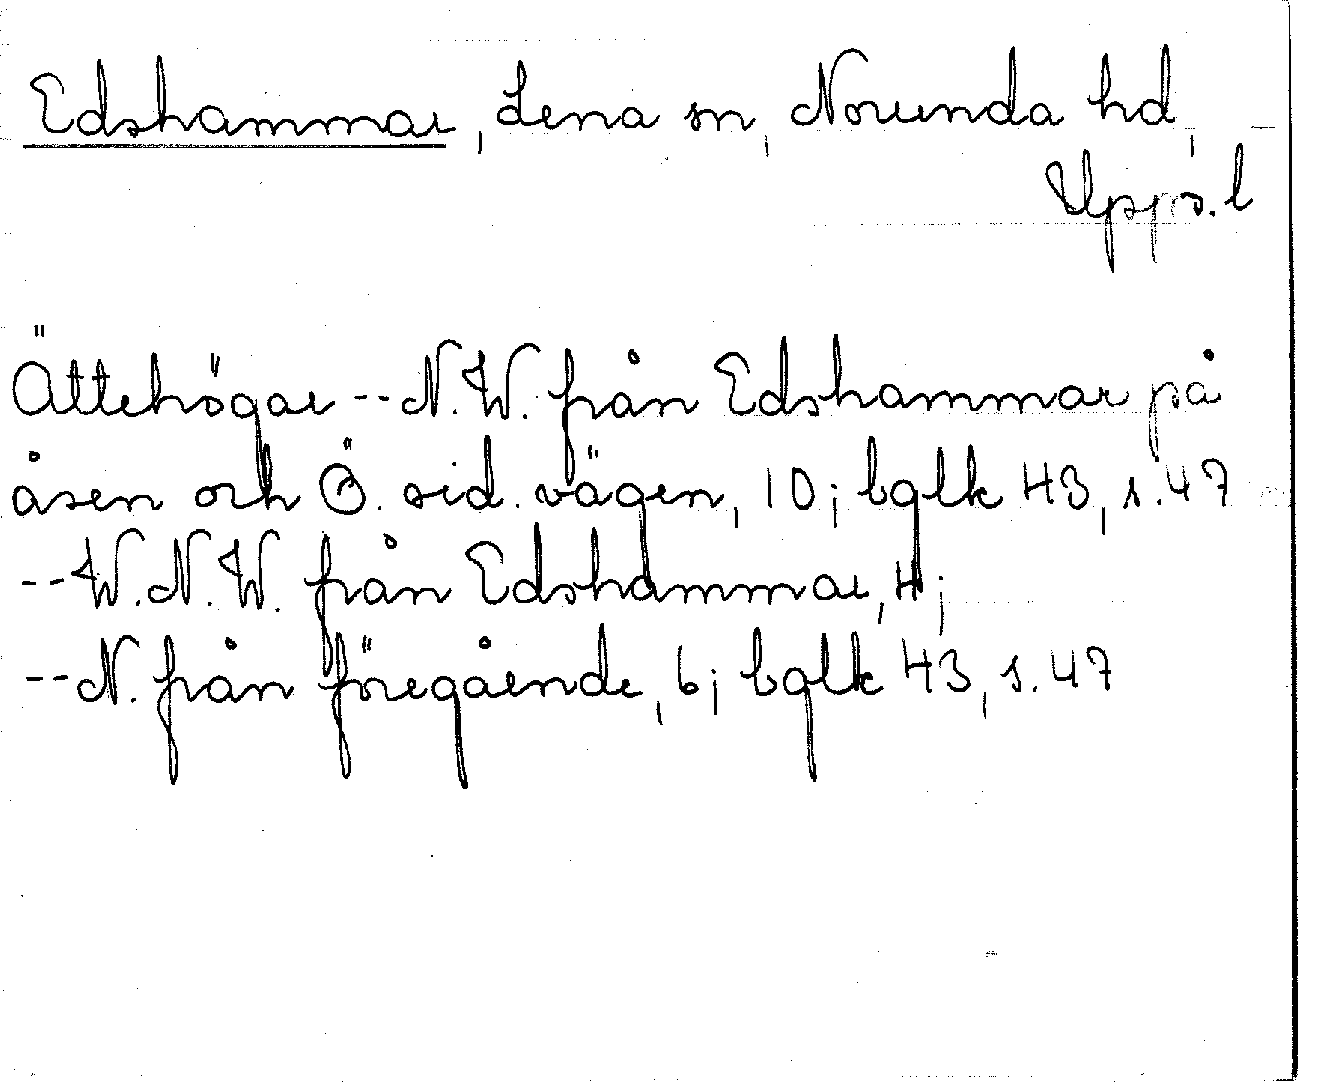 Edshammar, Lena sn, Norunda hd,
Upps. l
Ättehögar -- N.W. från Edshammar på
åsen och Ö. sid. vägen, 10; bglk 43, s. 47
-- W.N.W. från Edshammar, 4;
-- N. från föregående, 6; bglk 43, s. 47